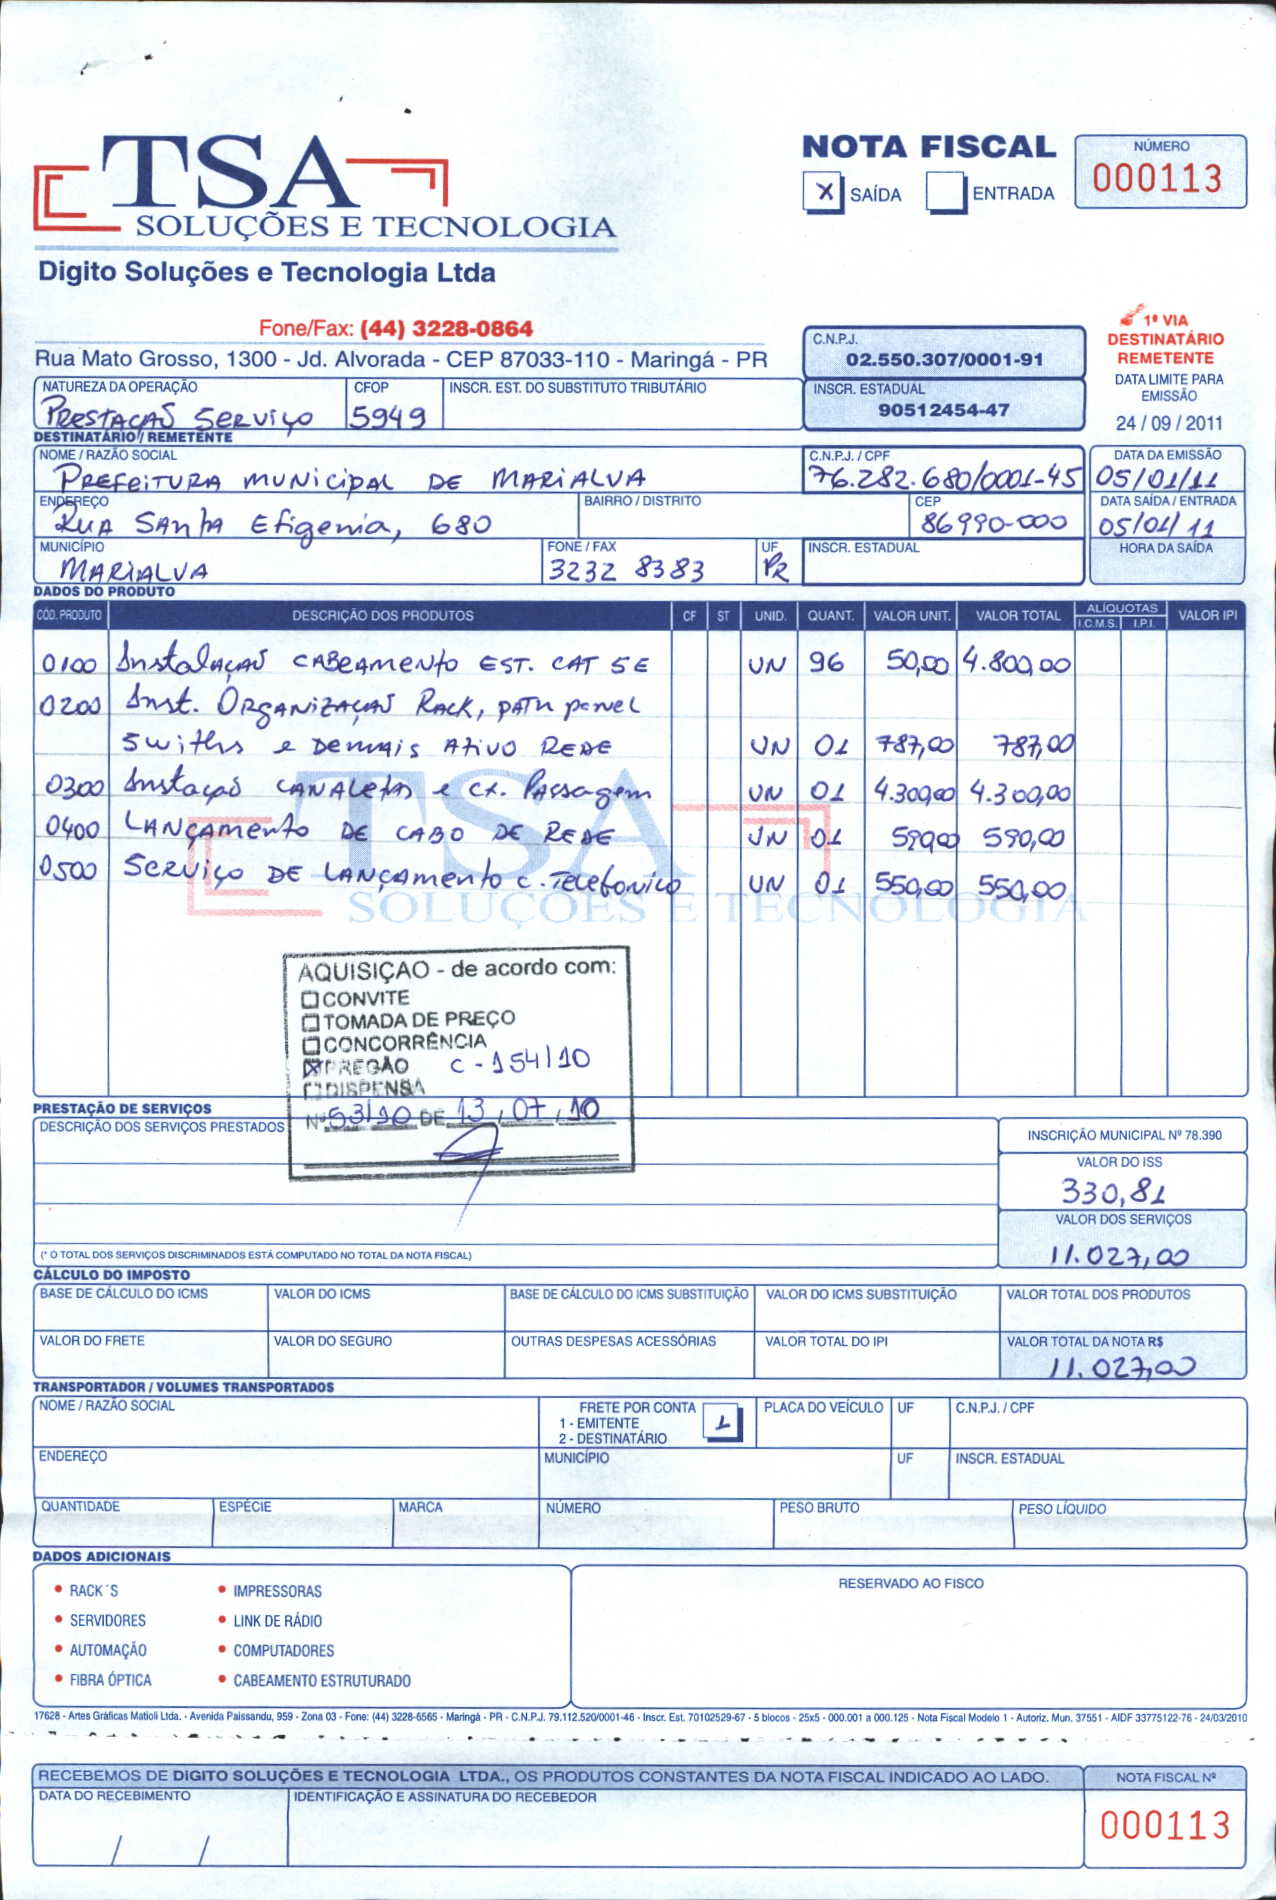 TSA
SOLUÇÕES E TECNOLOGIA
Digito Soluções e Tecnologia Ltda
NOTA FISCAL
X SAÍDA ENTRADA
NÚMERO
000113
Fone/Fax: (44) 3228-0864
Rua Mato Grosso, 1300 - Jd. Alvorada - CEP 87033-110 - Maringá - PR
C.N.P.J.
02.550.307/0001-91
INSCR. ESTADUAL
90512454-47
1ª VIA
DESTINATÁRIO
REMETENTE
DATA LIMITE PARA
EMISSÃO
24 / 09 / 2011
NATUREZA DA OPERAÇÃO CFOP INSCR. EST. DO SUBSTITUTO TRIBUTÁRIO
Prestação Serviço 5949
DESTINATÁRIO / REMETENTE
NOME / RAZÃO SOCIAL C.N.P.J. / CPF DATA DA EMISSÃO
Prefeitura Municipal de Marialva 76.282.680/0001-45 05/01/11
ENDEREÇO BAIRRO / DISTRITO CEP DATA SAÍDA / ENTRADA
Rua Santa Efigenia, 680 86990-000 05/01/11
MUNICÍPIO FONE / FAX UF INSCR. ESTADUAL HORA DA SAÍDA
Marialva 3232 8383 PR
DADOS DO PRODUTO
CÓD. PRODUTO DESCRIÇÃO DOS PRODUTOS CF ST UNID. QUANT. VALOR UNIT. VALOR TOTAL ALÍQUOTAS I.C.M.S. I.P.I. VALOR IPI
0100 Instalação Cabeamento Est. Cat 5E UN 96 50,00 4.800,00
0200 Inst. Organização Rack, patn panel
Swiths e Demais Ativo Rede UN 01 787,00 787,00
0300 Instação Canaletas e Cx. Passagem UN 01 4.300,00 4.300,00
0400 Lançamento de Cabo de Rede UN 01 590,00 590,00
0500 Serviço de Lançamento c. Telefonico UN 01 550,00 550,00
TSA
SOLUÇÕES E TECNOLOGIA
AQUISIÇAO - de acordo com:
CONVITE
TOMADA DE PREÇO
CONCORRÊNCIA
X PREGÃO C - 154/10
DISPENSA
Nº 53/10 DE 13 / 07 / 10
PRESTAÇÃO DE SERVIÇOS
DESCRIÇÃO DOS SERVIÇOS PRESTADOS
INSCRIÇÃO MUNICIPAL Nº 78.390
VALOR DO ISS
330,81
VALOR DOS SERVIÇOS
11.027,00
(* O TOTAL DOS SERVIÇOS DISCRIMINADOS ESTÁ COMPUTADO NO TOTAL DA NOTA FISCAL)
CÁLCULO DO IMPOSTO
BASE DE CÁLCULO DO ICMS VALOR DO ICMS BASE DE CÁLCULO DO ICMS SUBSTITUIÇÃO VALOR DO ICMS SUBSTITUIÇÃO VALOR TOTAL DOS PRODUTOS
VALOR DO FRETE VALOR DO SEGURO OUTRAS DESPESAS ACESSÓRIAS VALOR TOTAL DO IPI VALOR TOTAL DA NOTA R$
11.027,00
TRANSPORTADOR / VOLUMES TRANSPORTADOS
NOME / RAZÃO SOCIAL FRETE POR CONTA PLACA DO VEÍCULO UF C.N.P.J. / CPF
1 - EMITENTE 1
2 - DESTINATÁRIO
ENDEREÇO MUNICÍPIO UF INSCR. ESTADUAL
QUANTIDADE ESPÉCIE MARCA NÚMERO PESO BRUTO PESO LÍQUIDO
DADOS ADICIONAIS
RESERVADO AO FISCO
• RACK´S • IMPRESSORAS
• SERVIDORES • LINK DE RÁDIO
• AUTOMAÇÃO • COMPUTADORES
• FIBRA ÓPTICA • CABEAMENTO ESTRUTURADO
17628 - Artes Gráficas Matioli Ltda. - Avenida Paissandu, 959 - Zona 03 - Fone: (44) 3228-6565 - Maringá - PR - C.N.P.J. 79.112.520/0001-46 - Inscr. Est. 70102529-67 - 5 blocos - 25x5 - 000.001 a 000.125 - Nota Fiscal Modelo 1 - Autoriz. Mun. 37551 - AIDF 33775122-76 - 24/03/2010
RECEBEMOS DE DIGITO SOLUÇÕES E TECNOLOGIA LTDA., OS PRODUTOS CONSTANTES DA NOTA FISCAL INDICADO AO LADO. NOTA FISCAL Nº
DATA DO RECEBIMENTO IDENTIFICAÇÃO E ASSINATURA DO RECEBEDOR
/ / 000113